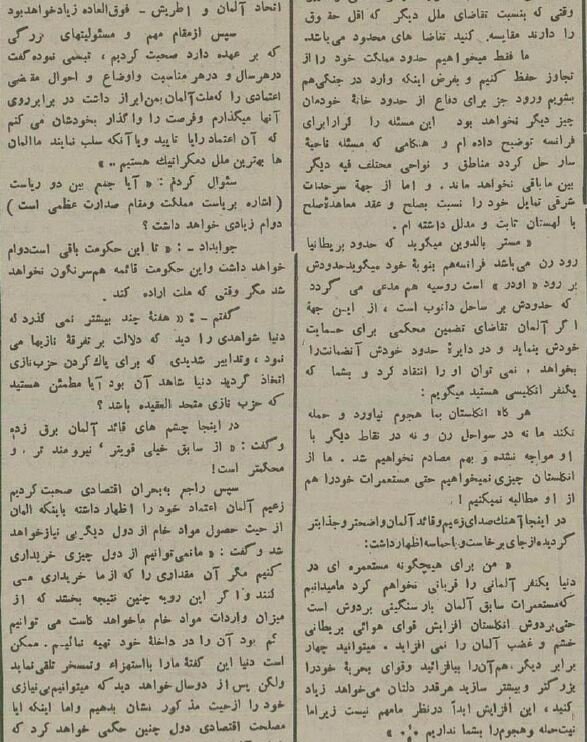 وقتی که بنسبت تقاضای ملل دیگر که اقل حقوق
را دارند مقایسه کنید تقاضا های محدود می‌باشد.
ما فقط میخواهیم حدود مملکت خود را از
تجاوز حفظ کنیم و بفرض اینکه وارد در جنگی‌هم
بشویم ورود جز برای دفاع از حدود خانهٔ خودمان
چیز دیگر نخواهد بود این مسئله را قرارا برای
فرانسه توضیح داده ام و هنگامی که مسئله ناحیهٔ
سار حل گردد مناطق و نواحی مختلف فیه دیگر
بین ما باقی نخواهد ماند. و اما از جهة سرحدات
شرقی تمایل خود را نسبت بصلح و عقد معاهدهٔ صلح
با لهستان ثابت و مدلل داشته ام.
« مستر بالدوین میگوید که حدود بریطانیا
رود رن می‌باشد فرانسه‌هم بنوبهٔ خود میگوید حدودش
بر رود « اودر » است روسیه هم مدعی می گردد
که حدودش بر ساحل دانوب است ، از این جهة
اگر آلمان تقاضای تضمین محکمی برای حمایت
خودش بنماید و در دایرهٔ حدود خودش آنضمانت‌را
بخواهد . نمی توان او را انتقاد کرد و بشما که
یکنفر انگلیسی هستید میگویم :
هر گاه انگلستان بما هجوم نیاورد و حمله
نکند ما نه در سواحل رن و نه در نقاط دیگر با
او مواجه نشده و بهم مصادم نخواهیم شد . ما از
انگلستان چیزی نمیخواهیم حتی مستعمرات خودرا هم
از او مطالبه نمیکنیم !
در اینجا آهنك صدای زعیم وقائد آلمان واضحتر وجذابتر
گردیده ازجای برخاست و باحماسه اظهار داشت:
« من برای هیچگونه مستعمره ای در
دنیا یکنفر آلمانی را قربانی نخواهم کرد ما میدانیم
که مستعمرات سابق آلمان بار سنگینی بردوش است
حتی بردوش انگلستان افزایش قوای هوائی بریطانی
خشم و غضب آلمان را نمی افزاید . میتوانید چهار
برابر دیگر هم آن‌را بیافزائید وقوای بحریهٔ خودرا
بزرگتر و بیشتر سازید هرقدر دلتان می‌خواهد زیاد
کنید ، این افزایش ابداً درنظر ما مهم نیست زیراما
نیت حمله وهجوم‌را بشما نداریم »
اتحاد آلمان و اطریش ـ فوق‌العاده زیاد خواهد بود
سپس ازمقام مهم و مسئولیتهای بزرگی
که بر عهده دارد صحبت کردیم ، تبسمی نموده گفت
درهرسال و درهر مناسبت واوضاع و احوال مقتضی
اعتمادی را که ملت آلمان بمن ابراز داشت در برابر روی
آنها میگذارم وفرصت را واگذار بخودشان می کنم
که آن اعتماد رایا تایید ویا آنکه سلب نمایند ما آلمان
ها بهترین ملل دمکراتیك هستیم .. »
سئوال کردم : « آیا جمع بین دو ریاست
( اشاره بریاست مملکت ومقام صدارت عظمی است )
دوام زیادی خواهد داشت ؟
جوابداد ـ : « تا این حکومت باقی است دوام
خواهد داشت واین حکومت قائمه هم سرنگون نخواهد
شد مگر وقتی که ملت اراده کند .
گفتم ـ : « هفتهٔ چند بیشتر نمی گذرد که
دنیا شواهدی را دید که دلالت بر تفرقهٔ نازیها می
نمود ، وتدابیر شدیدی که برای پاك کردن حزب نازی
اتخاذ گردید دنیا شاهد آن بود آیا مطمئن هستید
که حزب نازی متحد العقیده باشد ؟
در اینجا چشم های قائد آلمان برق زده
و گفت : « از سابق خیلی قویتر ‚ نیرومند تر ‚ و
محکمتر است !
سپس راجع به‌بحران اقتصادی صحبت کردیم
زعیم آلمان اعتماد خود را اظهار داشته باینکه المان
از حیث حصول مواد خام از دول دیگر بی نیازخواهد
شد و گفت : « مانمی‌توانیم از دول چیزی خریداری
کنیم مگر آن مقداری را که ازما خریداری می
کنند واگر این رویه چنین نتیجه بخشد که از
میزان واردات مواد خام ماخواهد کاست می توانیم
کم بود آن را در داخلهٔ خود تهیه نمائیم . ممکن
است دنیا این گفتهٔ مارا بااستهزاء وتمسخر تلقی‌نماید
ولکن پس از دوسال خواهد دید که میتوانیم بی‌نیازی
خود را ازحیث مذکور نشان بدهیم واما اینکه ایا
مصلحت اقتصادی دول چنین حکمی خواهد کرد که